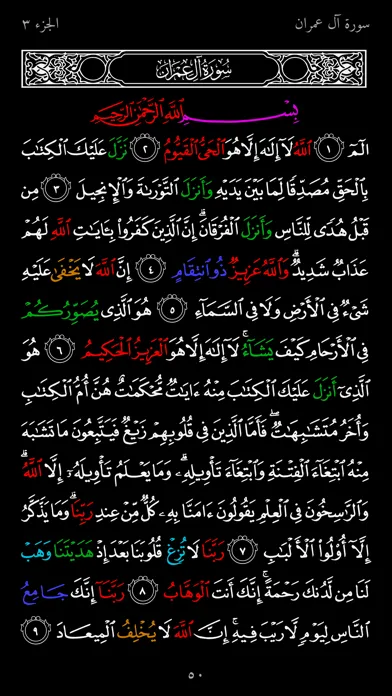 سورة آل عمران الجزء ٣
سُورَةُ آلِ عِمْرَانَ
بِسْمِ ٱللَّهِ ٱلرَّحْمَٰنِ ٱلرَّحِيمِ
الٓمٓ ١ ٱللَّهُ لَآ إِلَٰهَ إِلَّا هُوَ ٱلْحَىُّ ٱلْقَيُّومُ ٢ نَزَّلَ عَلَيْكَ ٱلْكِتَٰبَ
بِٱلْحَقِّ مُصَدِّقًا لِّمَا بَيْنَ يَدَيْهِ وَأَنزَلَ ٱلتَّوْرَىٰةَ وَٱلْإِنجِيلَ ٣ مِن
قَبْلُ هُدًى لِّلنَّاسِ وَأَنزَلَ ٱلْفُرْقَانَ ۗ إِنَّ ٱلَّذِينَ كَفَرُوا۟ بِـَٔايَٰتِ ٱللَّهِ لَهُمْ
عَذَابٌ شَدِيدٌ ۗ وَٱللَّهُ عَزِيزٌ ذُو ٱنتِقَامٍ ٤ إِنَّ ٱللَّهَ لَا يَخْفَىٰ عَلَيْهِ
شَىْءٌ فِى ٱلْأَرْضِ وَلَا فِى ٱلسَّمَآءِ ٥ هُوَ ٱلَّذِى يُصَوِّرُكُمْ
فِى ٱلْأَرْحَامِ كَيْفَ يَشَآءُ ۚ لَآ إِلَٰهَ إِلَّا هُوَ ٱلْعَزِيزُ ٱلْحَكِيمُ ٦ هُوَ
ٱلَّذِىٓ أَنزَلَ عَلَيْكَ ٱلْكِتَٰبَ مِنْهُ ءَايَٰتٌ مُّحْكَمَٰتٌ هُنَّ أُمُّ ٱلْكِتَٰبِ
وَأُخَرُ مُتَشَٰبِهَٰتٌ ۖ فَأَمَّا ٱلَّذِينَ فِى قُلُوبِهِمْ زَيْغٌ فَيَتَّبِعُونَ مَا تَشَٰبَهَ
مِنْهُ ٱبْتِغَآءَ ٱلْفِتْنَةِ وَٱبْتِغَآءَ تَأْوِيلِهِۦ ۗ وَمَا يَعْلَمُ تَأْوِيلَهُۥٓ إِلَّا ٱللَّهُ ۗ
وَٱلرَّٰسِخُونَ فِى ٱلْعِلْمِ يَقُولُونَ ءَامَنَّا بِهِۦ كُلٌّ مِّنْ عِندِ رَبِّنَا ۗ وَمَا يَذَّكَّرُ
إِلَّآ أُو۟لُوا۟ ٱلْأَلْبَٰبِ ٧ رَبَّنَا لَا تُزِغْ قُلُوبَنَا بَعْدَ إِذْ هَدَيْتَنَا وَهَبْ
لَنَا مِن لَّدُنكَ رَحْمَةً ۚ إِنَّكَ أَنتَ ٱلْوَهَّابُ ٨ رَبَّنَآ إِنَّكَ جَامِعُ
ٱلنَّاسِ لِيَوْمٍ لَّا رَيْبَ فِيهِ ۚ إِنَّ ٱللَّهَ لَا يُخْلِفُ ٱلْمِيعَادَ ٩
٥٠